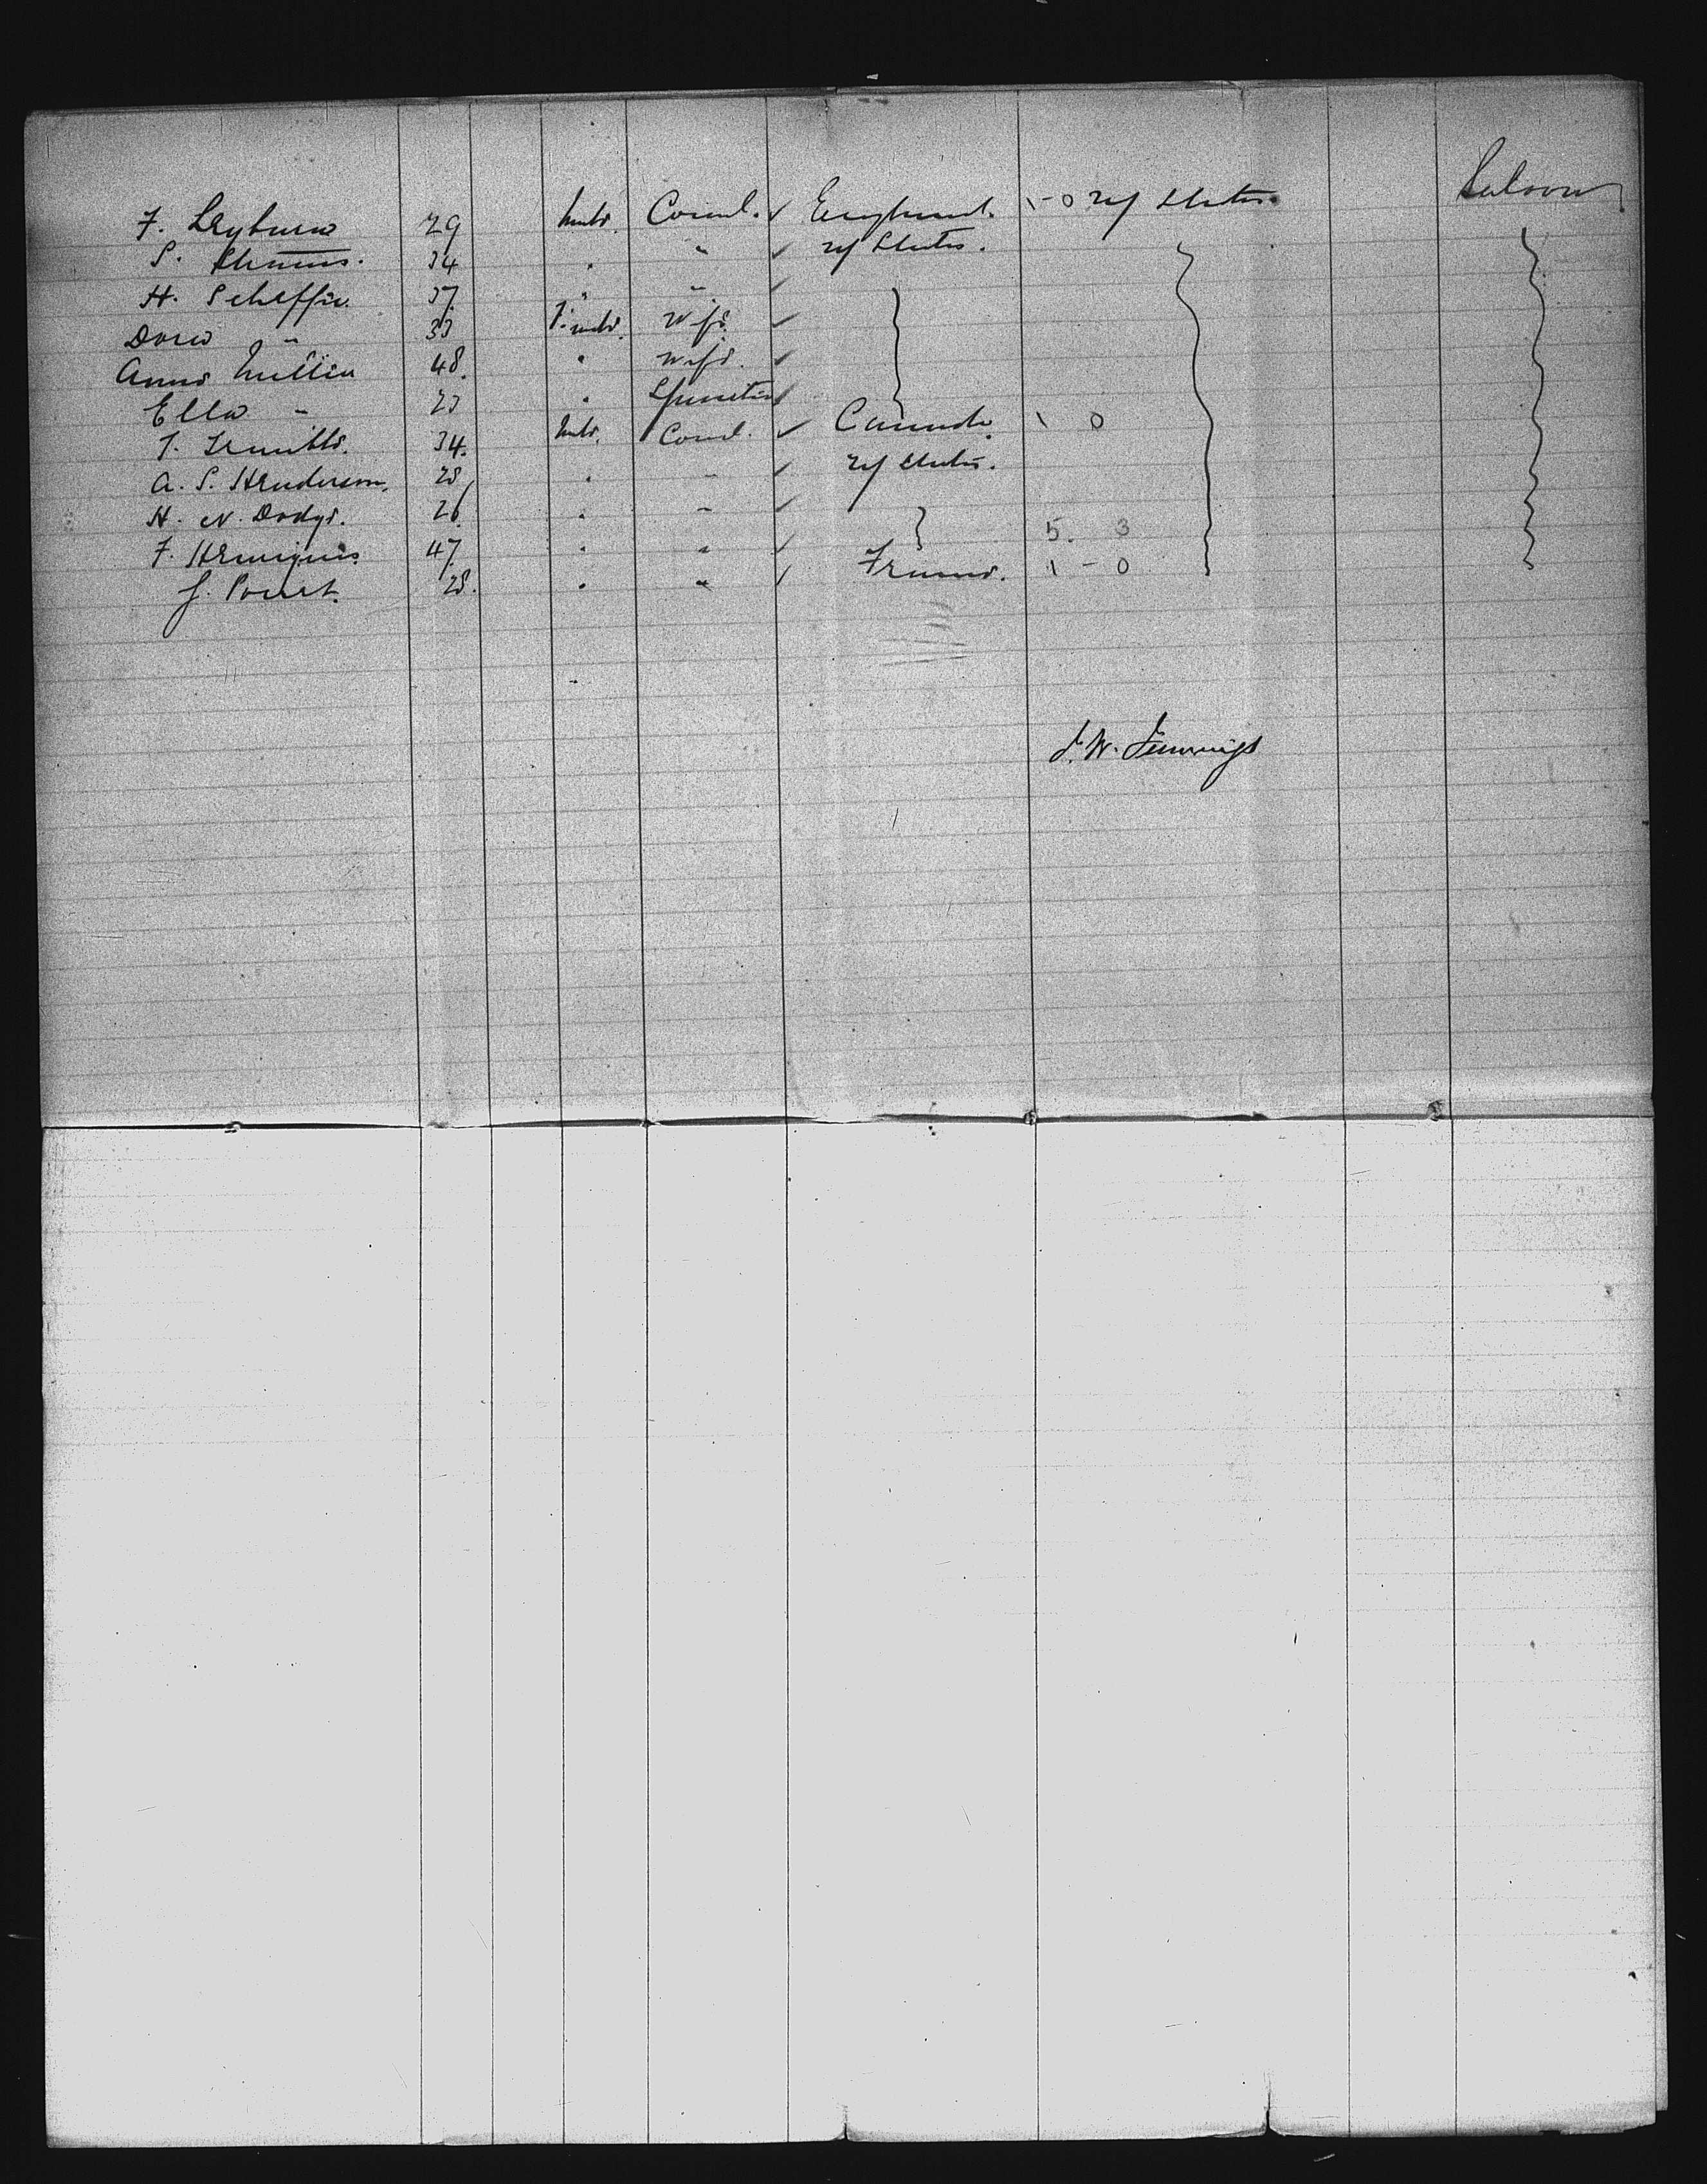 F. Leyburn 29 Male. Coml. ✓ England. 1-0 U States. Saloon
S. Strauss. 34 " " ✓ U States.
H. Scheffer. 37. " " ✓
Dora " 33 Female. Wife. ✓
Anna Miller 48. " Wife. ✓
Ella " 23 " Spinster ✓
T. 34. Male. Coml. ✓ Canada. 1 0
A. S. Henderson. 28. " " ✓ U States.
H. N. Dodge. 26. " " ✓
F. Henriques. 47. " " ✓ 5. 3
J. 28. " " ✓ France. 1-0
J. W. Jennings